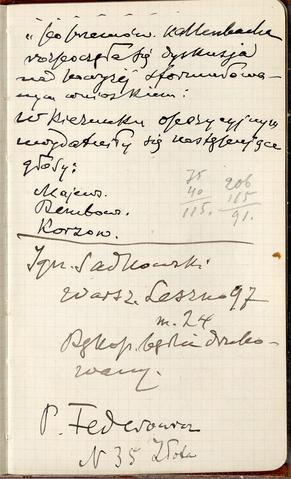 „Po przemów. Kallenbacha
rozpoczęła się dyskusja
nad powyżej sformułowa-
nym wnioskiem:
w kierunku opozycyjnym
wydatniły się następujące
głosy:
Majew.
Rembow.
Korzon.
75
40
115.
206
165
91.
Ign. Sadkowski
Warsz. Leszno 97
m. 24
Rękop. będzie druko-
wany.
P. Federowicz
N 35 Złota